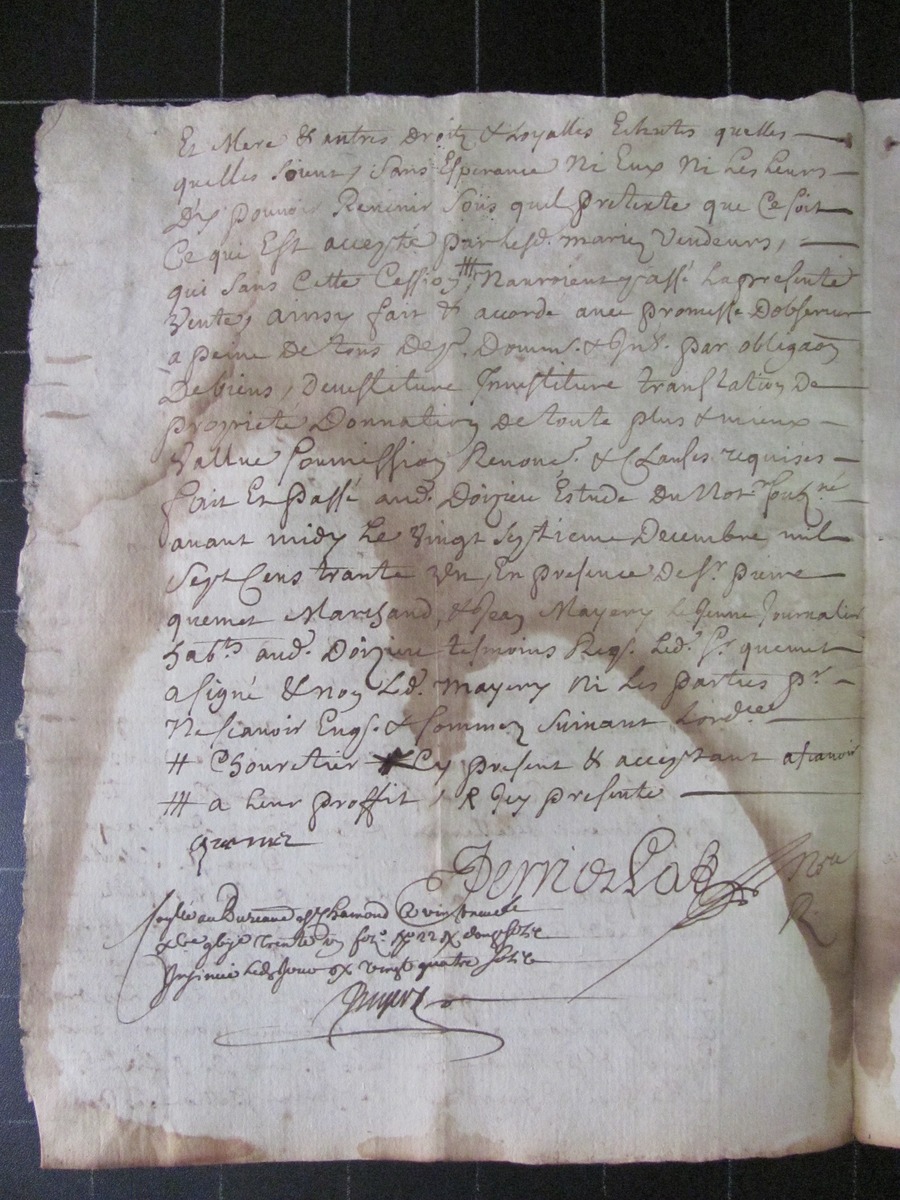 Et Mere & autres droitz & Loyalles Echutes quelles
quelles soient, sans Esperance Ni Eux Ni les leurs
D'y pouvoir Revenir sous quel pretexte que Ce soit
Ce qui Est accepté par lesd. mariez Vendeurs,
qui sans Cette Cession ⧻ Nauroient passé La presente
Vente, ainsy fait & accordé avec promesse Dobserver
a peine De tous Desp. Domm. & Int. par obligaõn
De biens, Devestiture Investiture translation De
proprieté Donnation de toute plus & mieux
Vallue soumission Renonc. & Clauses requises
fait Et passé aud. Doizieu Estude Du Not.re sous.né
avant midy Le Vingt Septieme Decembre mil
Sept Cens trante Un, En presence De Sr. pierre
quemet Marchand, & Jean Mayery Le Jeune Journalier
hab.ts aud. Doizieu tesmoins Reqs. Led. Sr. quemet
a signé & Non Led. Mayery Ni Les parties pr.
Ne scavoir Enqs. & sommez suivant Lord.ce
# Chouretier Cy present & acceptant ascavoir
⧻ a leur proffit, R Jcy presente
quemet
Not.re
R.
Scellé au Bureau de St Chamond Le vingt neufe
trente un fo. 22 Rx douze sols
Insinué Led. Jour Rx vingt quatre sols